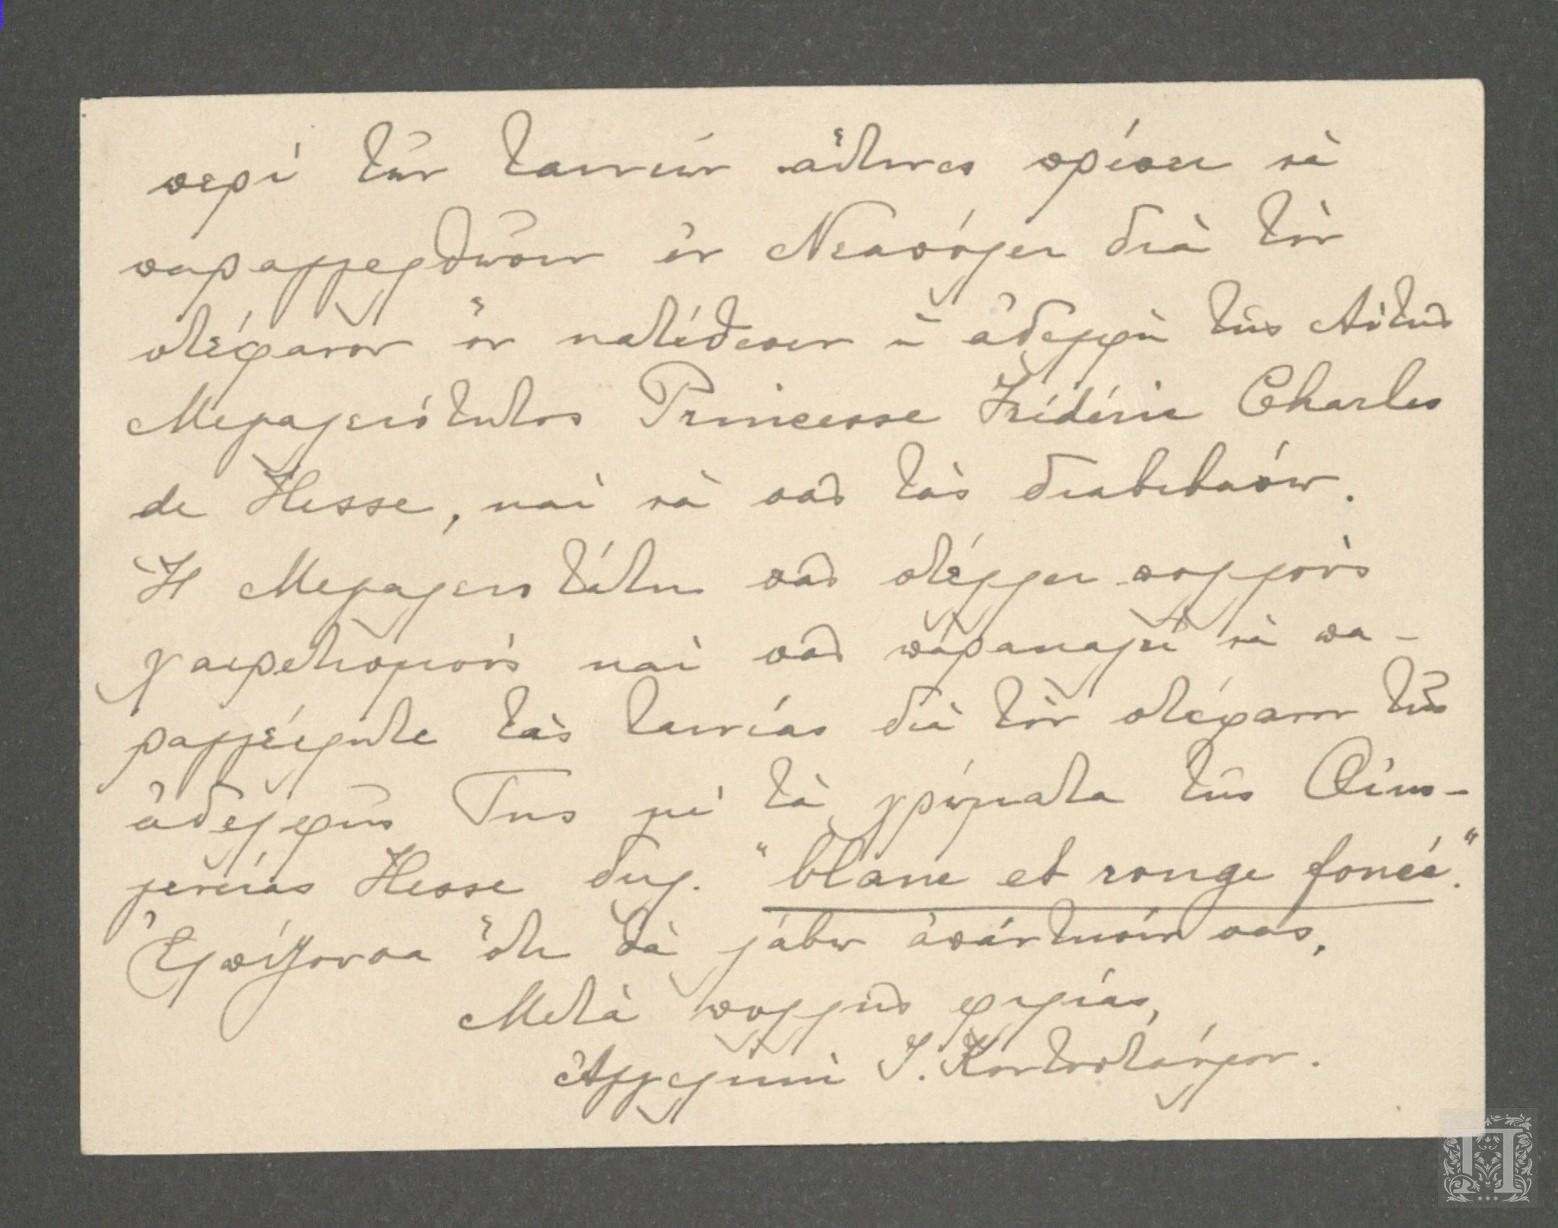 περὶ τῶν ταινιῶν αἵτινες πρέπει νὰ
παραγγελθῶσιν ἐν Νεαπόλει διὰ τὸν
στέφανον ὃν κατέθεσεν ἡ ἀδελφὴ τῆς Αὐτῆς
Μεγαλειότητος Princesse Frédéric Charles
de Hesse, καὶ νὰ σᾶς τὰς διαβιβάσω.
Ἡ Μεγαλειοτάτη σᾶς στέλλει πολλοὺς
χαιρετισμοὺς καὶ σᾶς παρακαλεῖ νὰ πα-
ραγγείλητε τὰς ταινίας διὰ τὸν στέφανον τῆς
ἀδελφῆς Της μὲ τὰ χρώματα τῆς Οἰκο-
γενείας Hesse δηλ. "blanc et rouge foncé".
Ἐλπίζουσα ὅτι θὰ λάβω ἀπάντησίν σας,
Μετὰ πολλῆς φιλίας,
Ἀγγελικὴ Ἰ. Κοντοσταύλου.